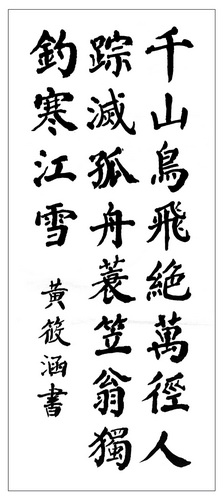 千山鳥飛絕萬徑人
踪滅孤舟蓑笠翁獨
釣寒江雪
黃筱涵書